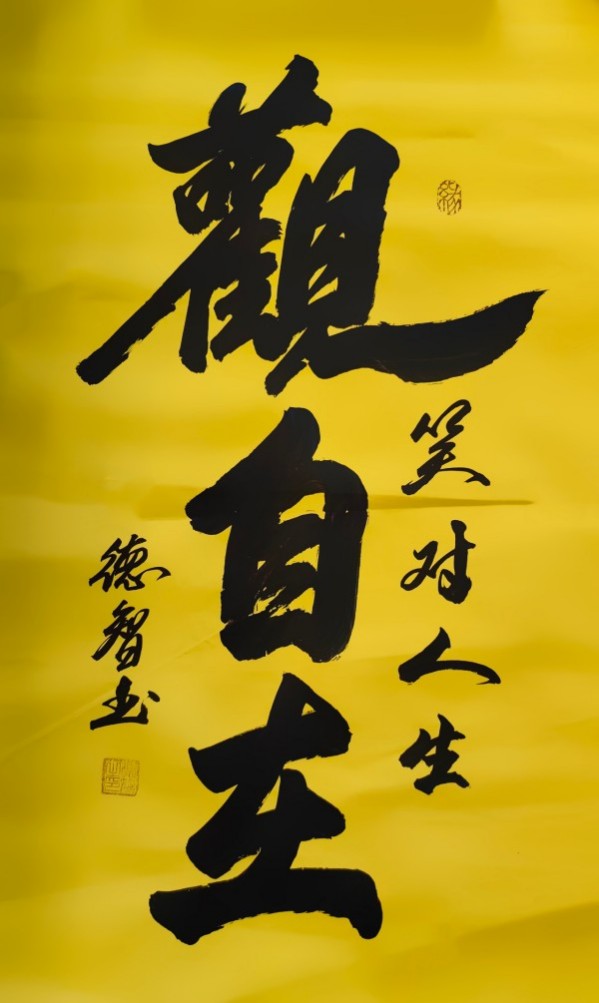 觀自在
笑对人生
德智书